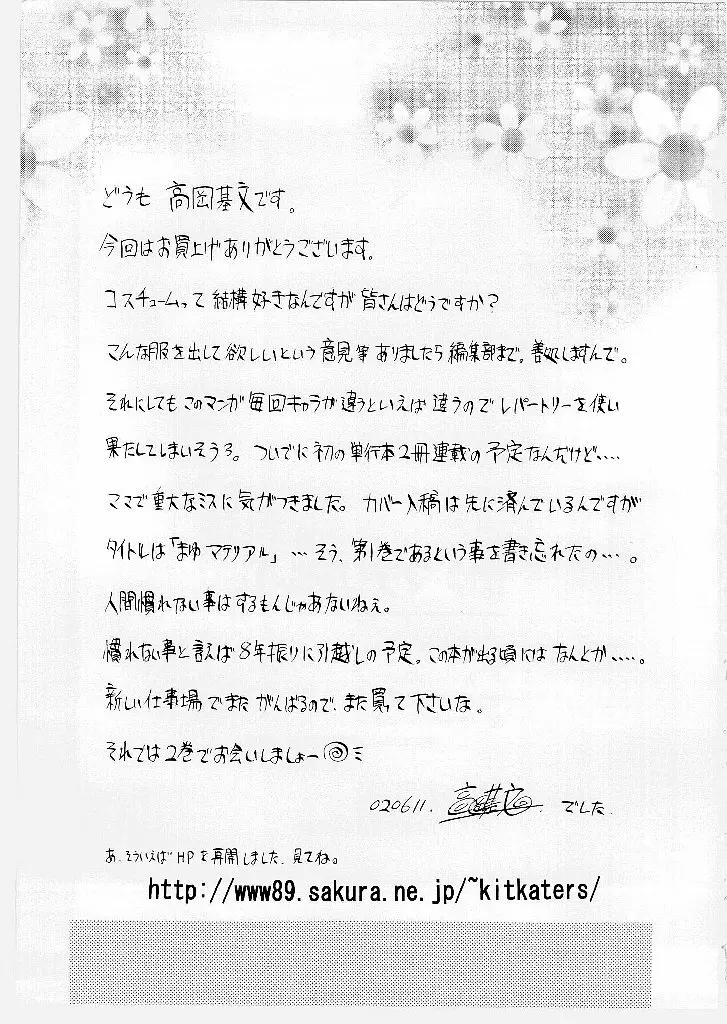 どうも 高岡基文です。
今回はお買上げありがとうございます。
コスチュームって 結構好きなんですが 皆さんはどうですか？
こんな服を出して欲しいという意見等ありましたら編集部まで。善処しますんで。
それにしてもこのマンガ毎回キャラが違うといえば 違うので レパートリーを使い
果たしてしまいそうろ。ついでに初の単行本2冊連載の予定なんだけど‥‥
ママで重大なミスに気がつきました。カバー入稿は先に済んでいるんですが
タイトルは「まゆマテリアル」…そう、第1巻であるという事を書き忘れたの…。
人間慣れない事はするもんじゃあないねぇ。
慣れない事と言えば8年振りに引越しの予定。この本が出る頃には なんとか‥‥。
新しい仕事場でまた がんばるので、また買って下さいな。
それでは2巻でお会いしましょー
020611. 高岡基文 でした.
あ、そういえばHPを再開しました、見てね。
http://www89.sakura.ne.jp/~kitkaters/